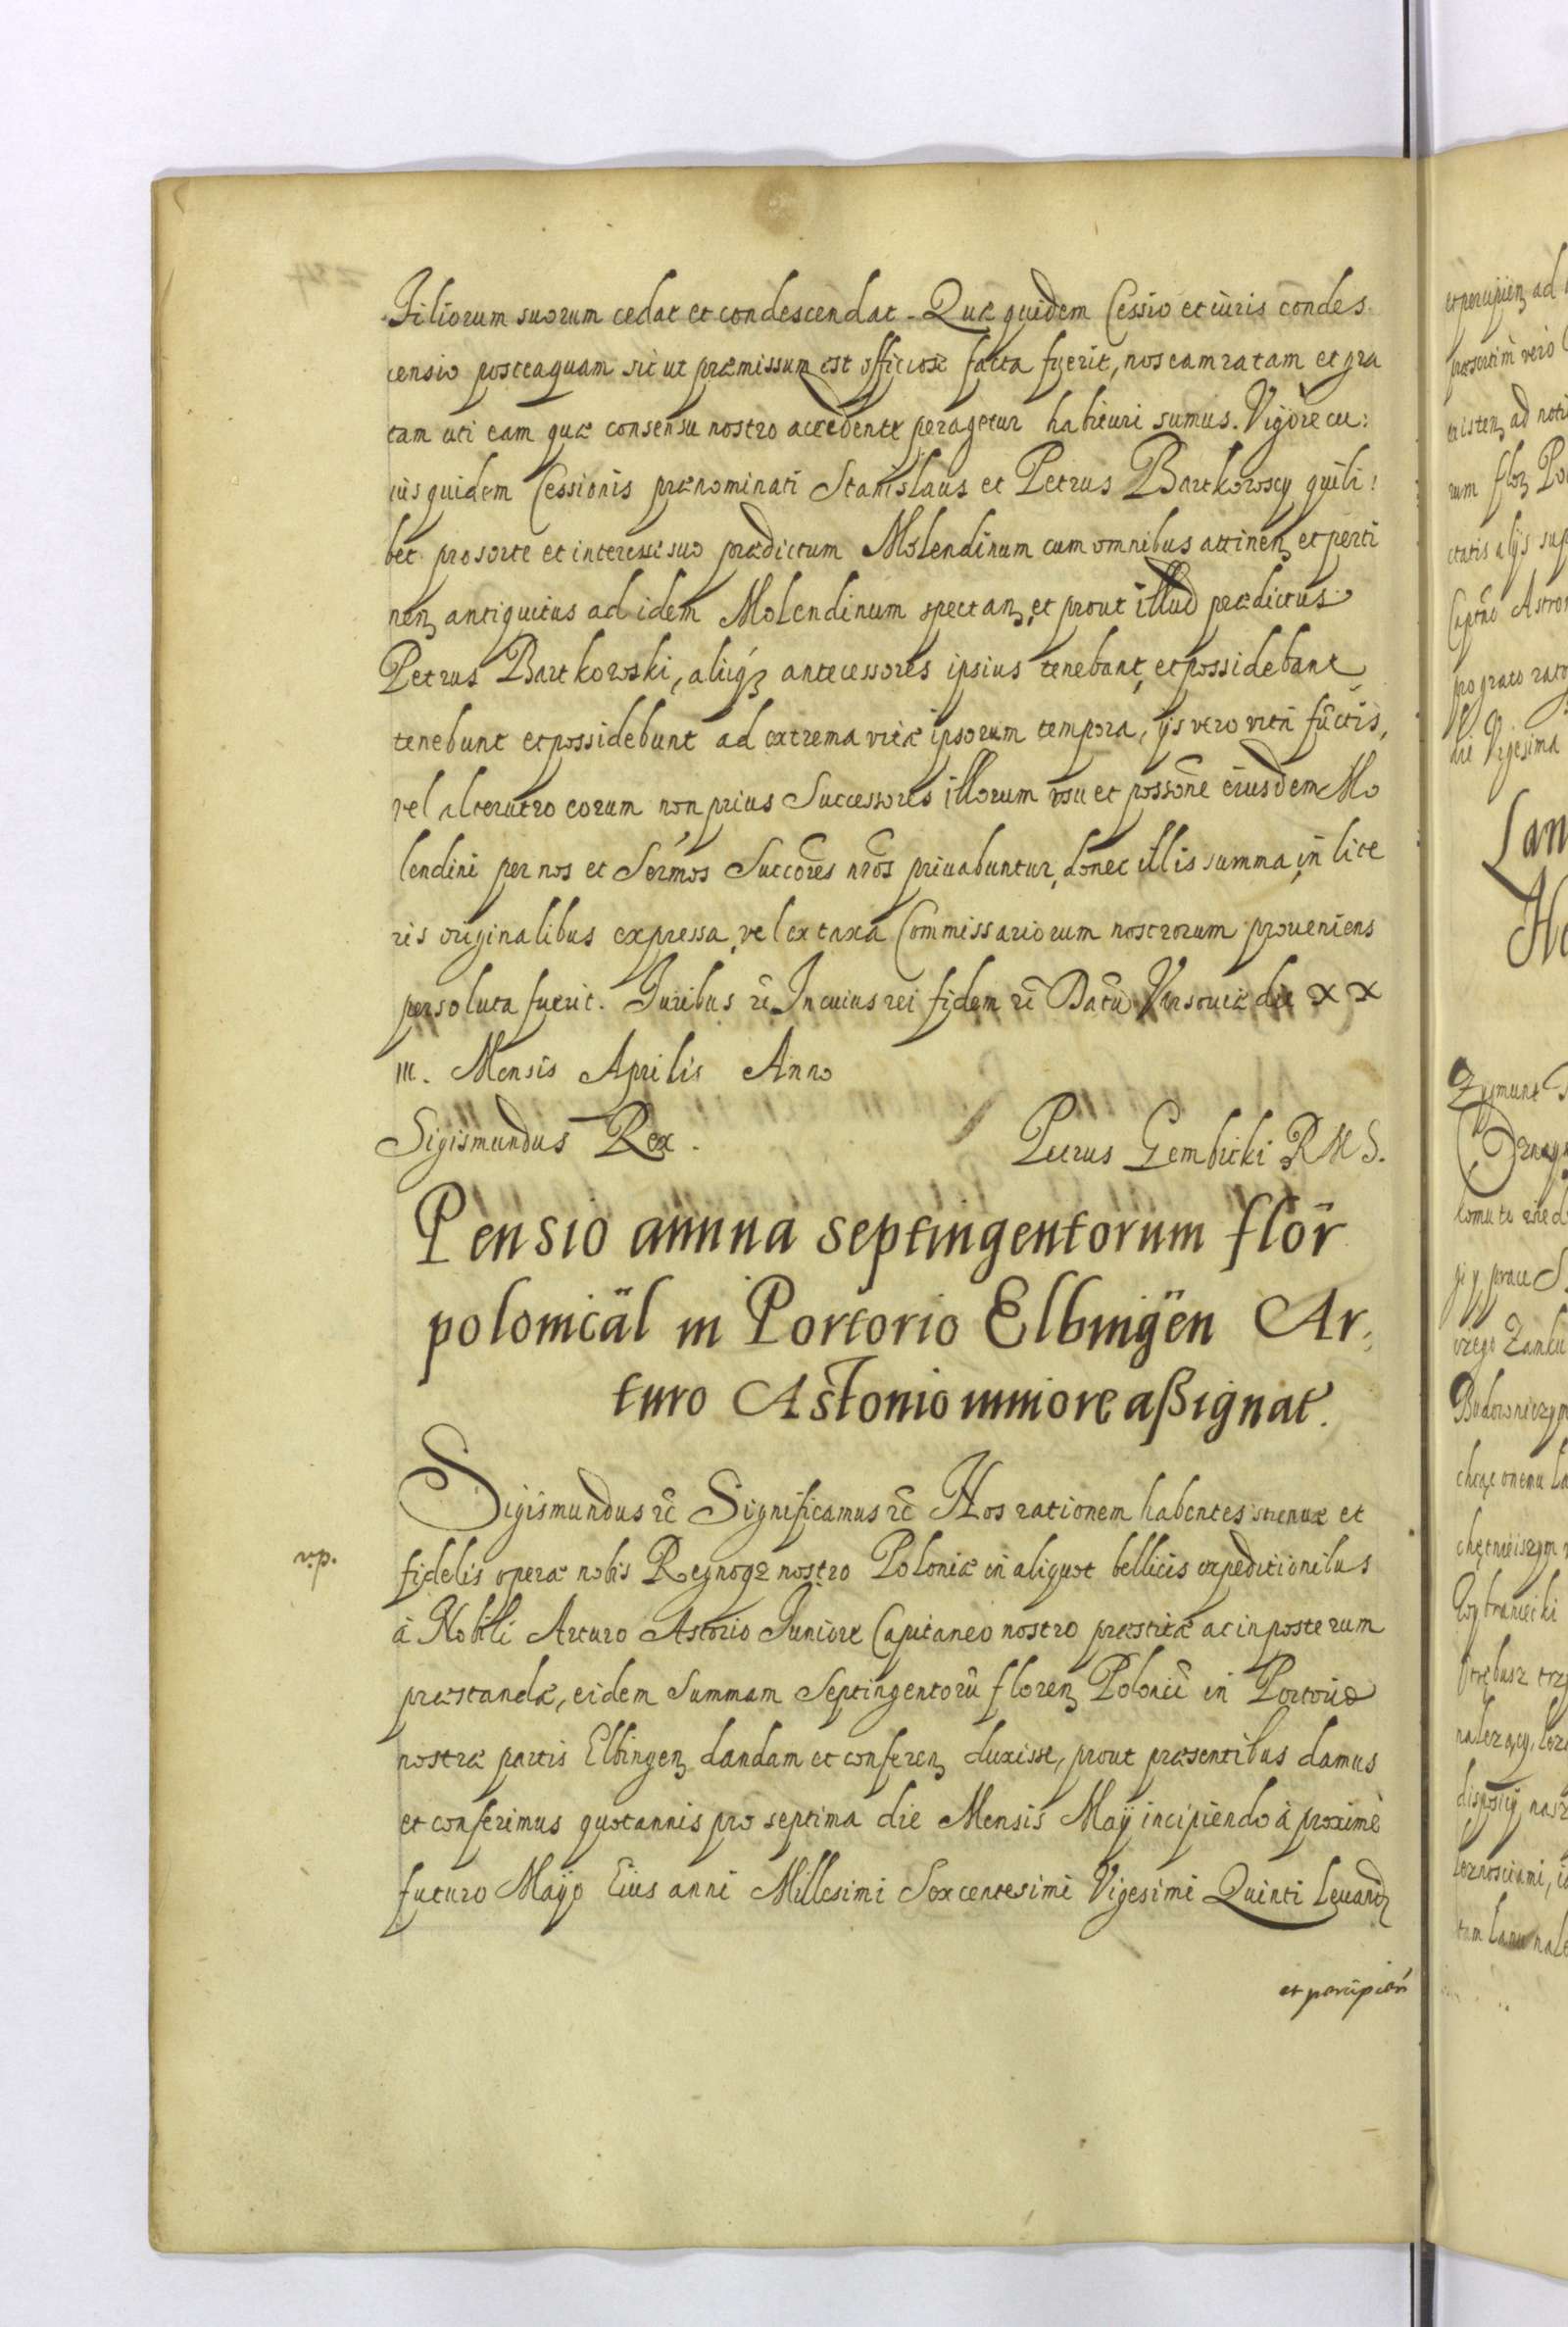 Filiorum suorum cedat et condescendat. Quæ quidem Cessio et iuris condes
censio posteaquam sicut præmissum est officiose facta fuerit, nos eam ratam et gra
tam uti eam quæ consensu nostro accedente peragetur habituri sumus. Vigore cu:
ius quidem Cessionis prænominati Stanislaus et Petrus Bartkowscy quili:
bet pro sorte et interesse suo prædictum Molendinum cum omnibus attinenȝ et perti
nenȝ antiquitus ad idem Molendinum spectanȝ, et prout illud prædictus
Petrus Bartkowski, aliiqȝ antecessores ipsius tenebant, et possidebant
tenebunt et possidebunt ad extrema vitæ ipsorum tempora, ijs vero vitā fūctis,
vel alterutro eorum non prius Successores illorum usu et possōne eiusdem Mo
lendini per nos et Sermōs Succōres nrōs privabuntur, donec illis summa, in lite
ris originalibus expressa, vel ex taxa Commissariorum nostrorum proveniens
persoluta fuerit. Iuribus rē In cuius rei fidem rē Datū Varsoviæ die XX
III. Mensis Aprilis Anno
Sigismundus Rex.
Petrus Gembicki R M S.
Pensio annua septingentorum flor̄
polonicāl in Portorio Elbingēn Ar,
turo Astonio iuniore aßignat.
Sigismundus rē Significamus rē Nos rationem habentes strenuæ et
fidelis operæ nobis Regnoqȝ nostro Poloniæ in aliquot bellicis expeditionibus
à Nobili Arturo Astonio Iuniore Capitaneo nostro præstitæ ac in posterum
præstandæ, eidem Summam Septingentorū florenȝ Polonicā in Portorio
nostræ partis Elbingenȝ dandam et conferenȝ duxisse, prout præsentibus damus
et conferimus quotannis pro septima die Mensis Maij incipiendo à proxime
futuro Maijo Eius anni Millesimi Sexcentesimi Vigesimi Quinti levandȝ
et percipien̄
et percipienȝ ad
præsertim vero
existenȝ ad noti
rum florȝ Po
ctatis alijs sup
Captn̄o Aston
pro grato rato
die Vigesima
Lan
Zygmunt
komu to wied
gi y prace S.
Budowniczym
chcąc onemu ła
chętnieiszym
należący, 
disposicij nasz